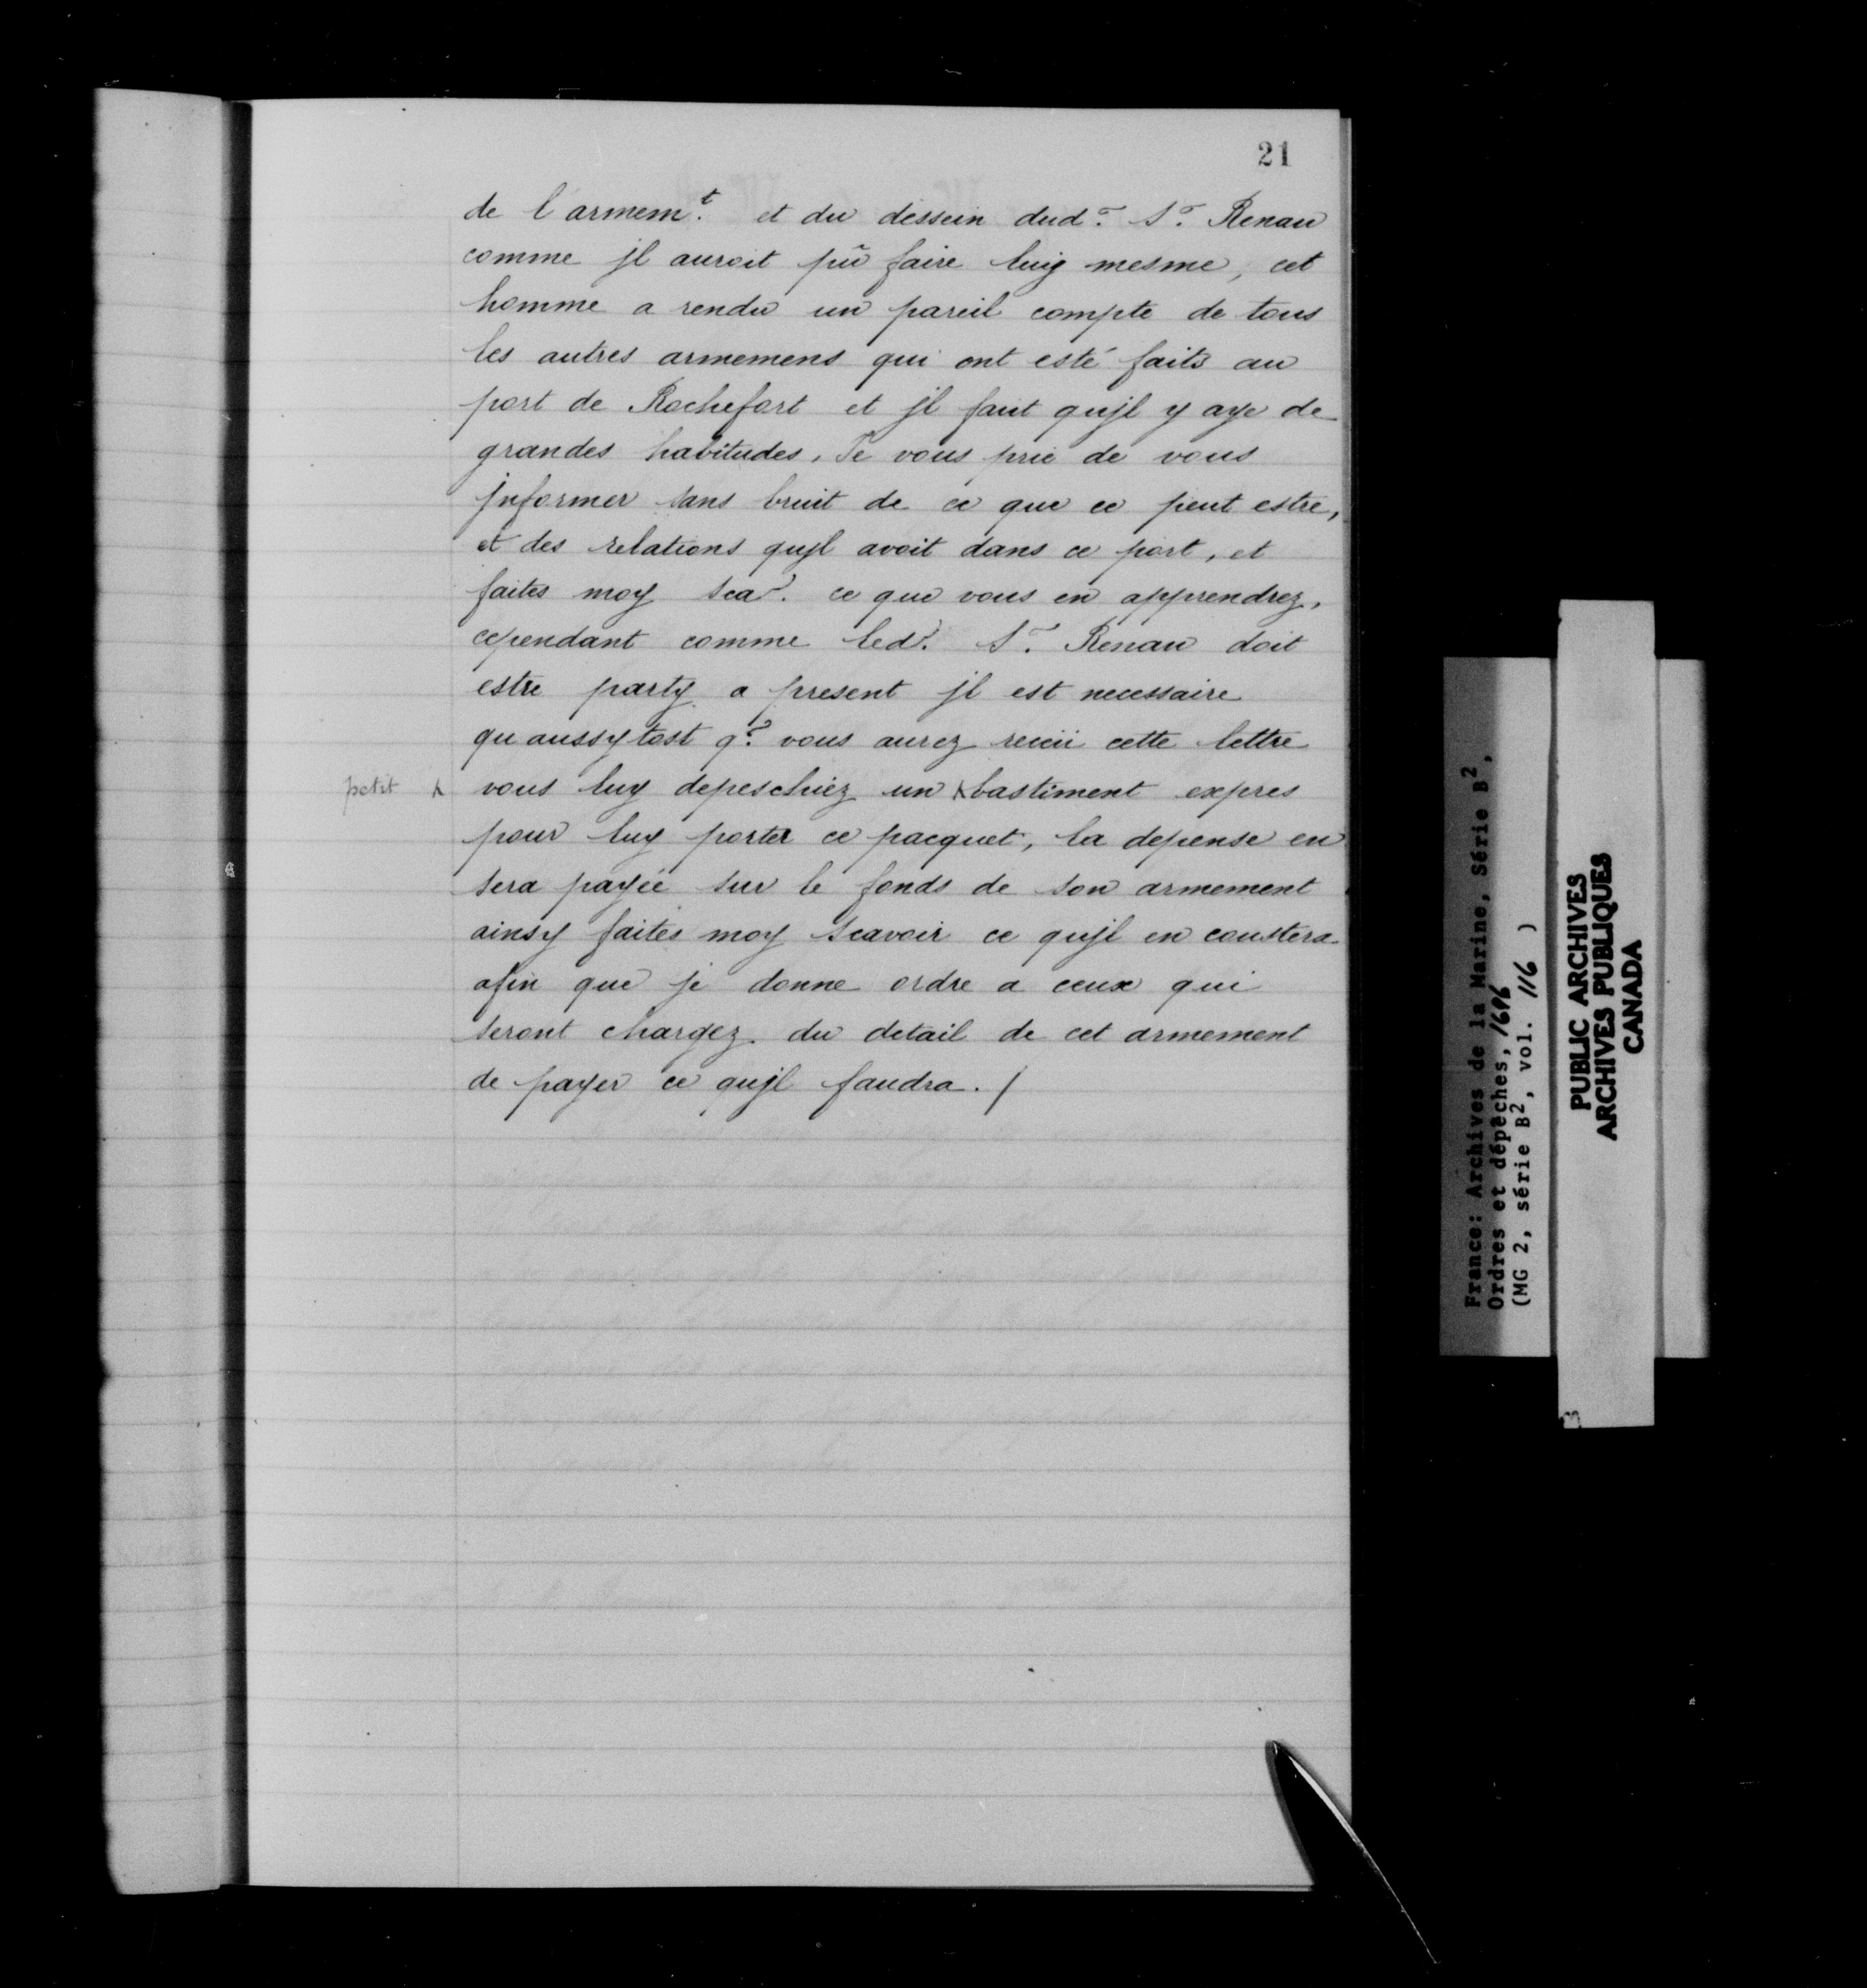 21
de l'armem.t et du dessein dud. Sr. Renau
comme jl auroit pû faire luy mesme, cet
homme a rendu un pareil compte de tous
les autres armemens qui ont esté faits au
port de Rochefort et jl faut qujl y aye de
grandes habitudes. Je vous prie de vous
jnformer sans bruit de ce que ce peut estre,
et des relations qujl avoit dans ce port, et
faites moy sca.r ce que vous en apprendrez,
cependant comme led. Sr. Renau doit
estre party a present jl est necessaire
qu aussytost q.e vous aurez receü cette lettre
petit ⁁ vous luy depeschiez un ⁁bastiment expres
pour luy porter ce pacquet, la depense en
sera payée sur le fonds de son armement
ainsy faites moy scavoir ce qujl en coustera
afin que je donne ordre a ceux qui
seront chargez du detail de cet armement
de payer ce qujl faudra./
France: Archives de la Marine, Série B2,
Ordres et dépêches, 1696
(MG 2, série B2, vol. 116 )
PUBLIC ARCHIVES
ARCHIVES PUBLIQUES
CANADA
3